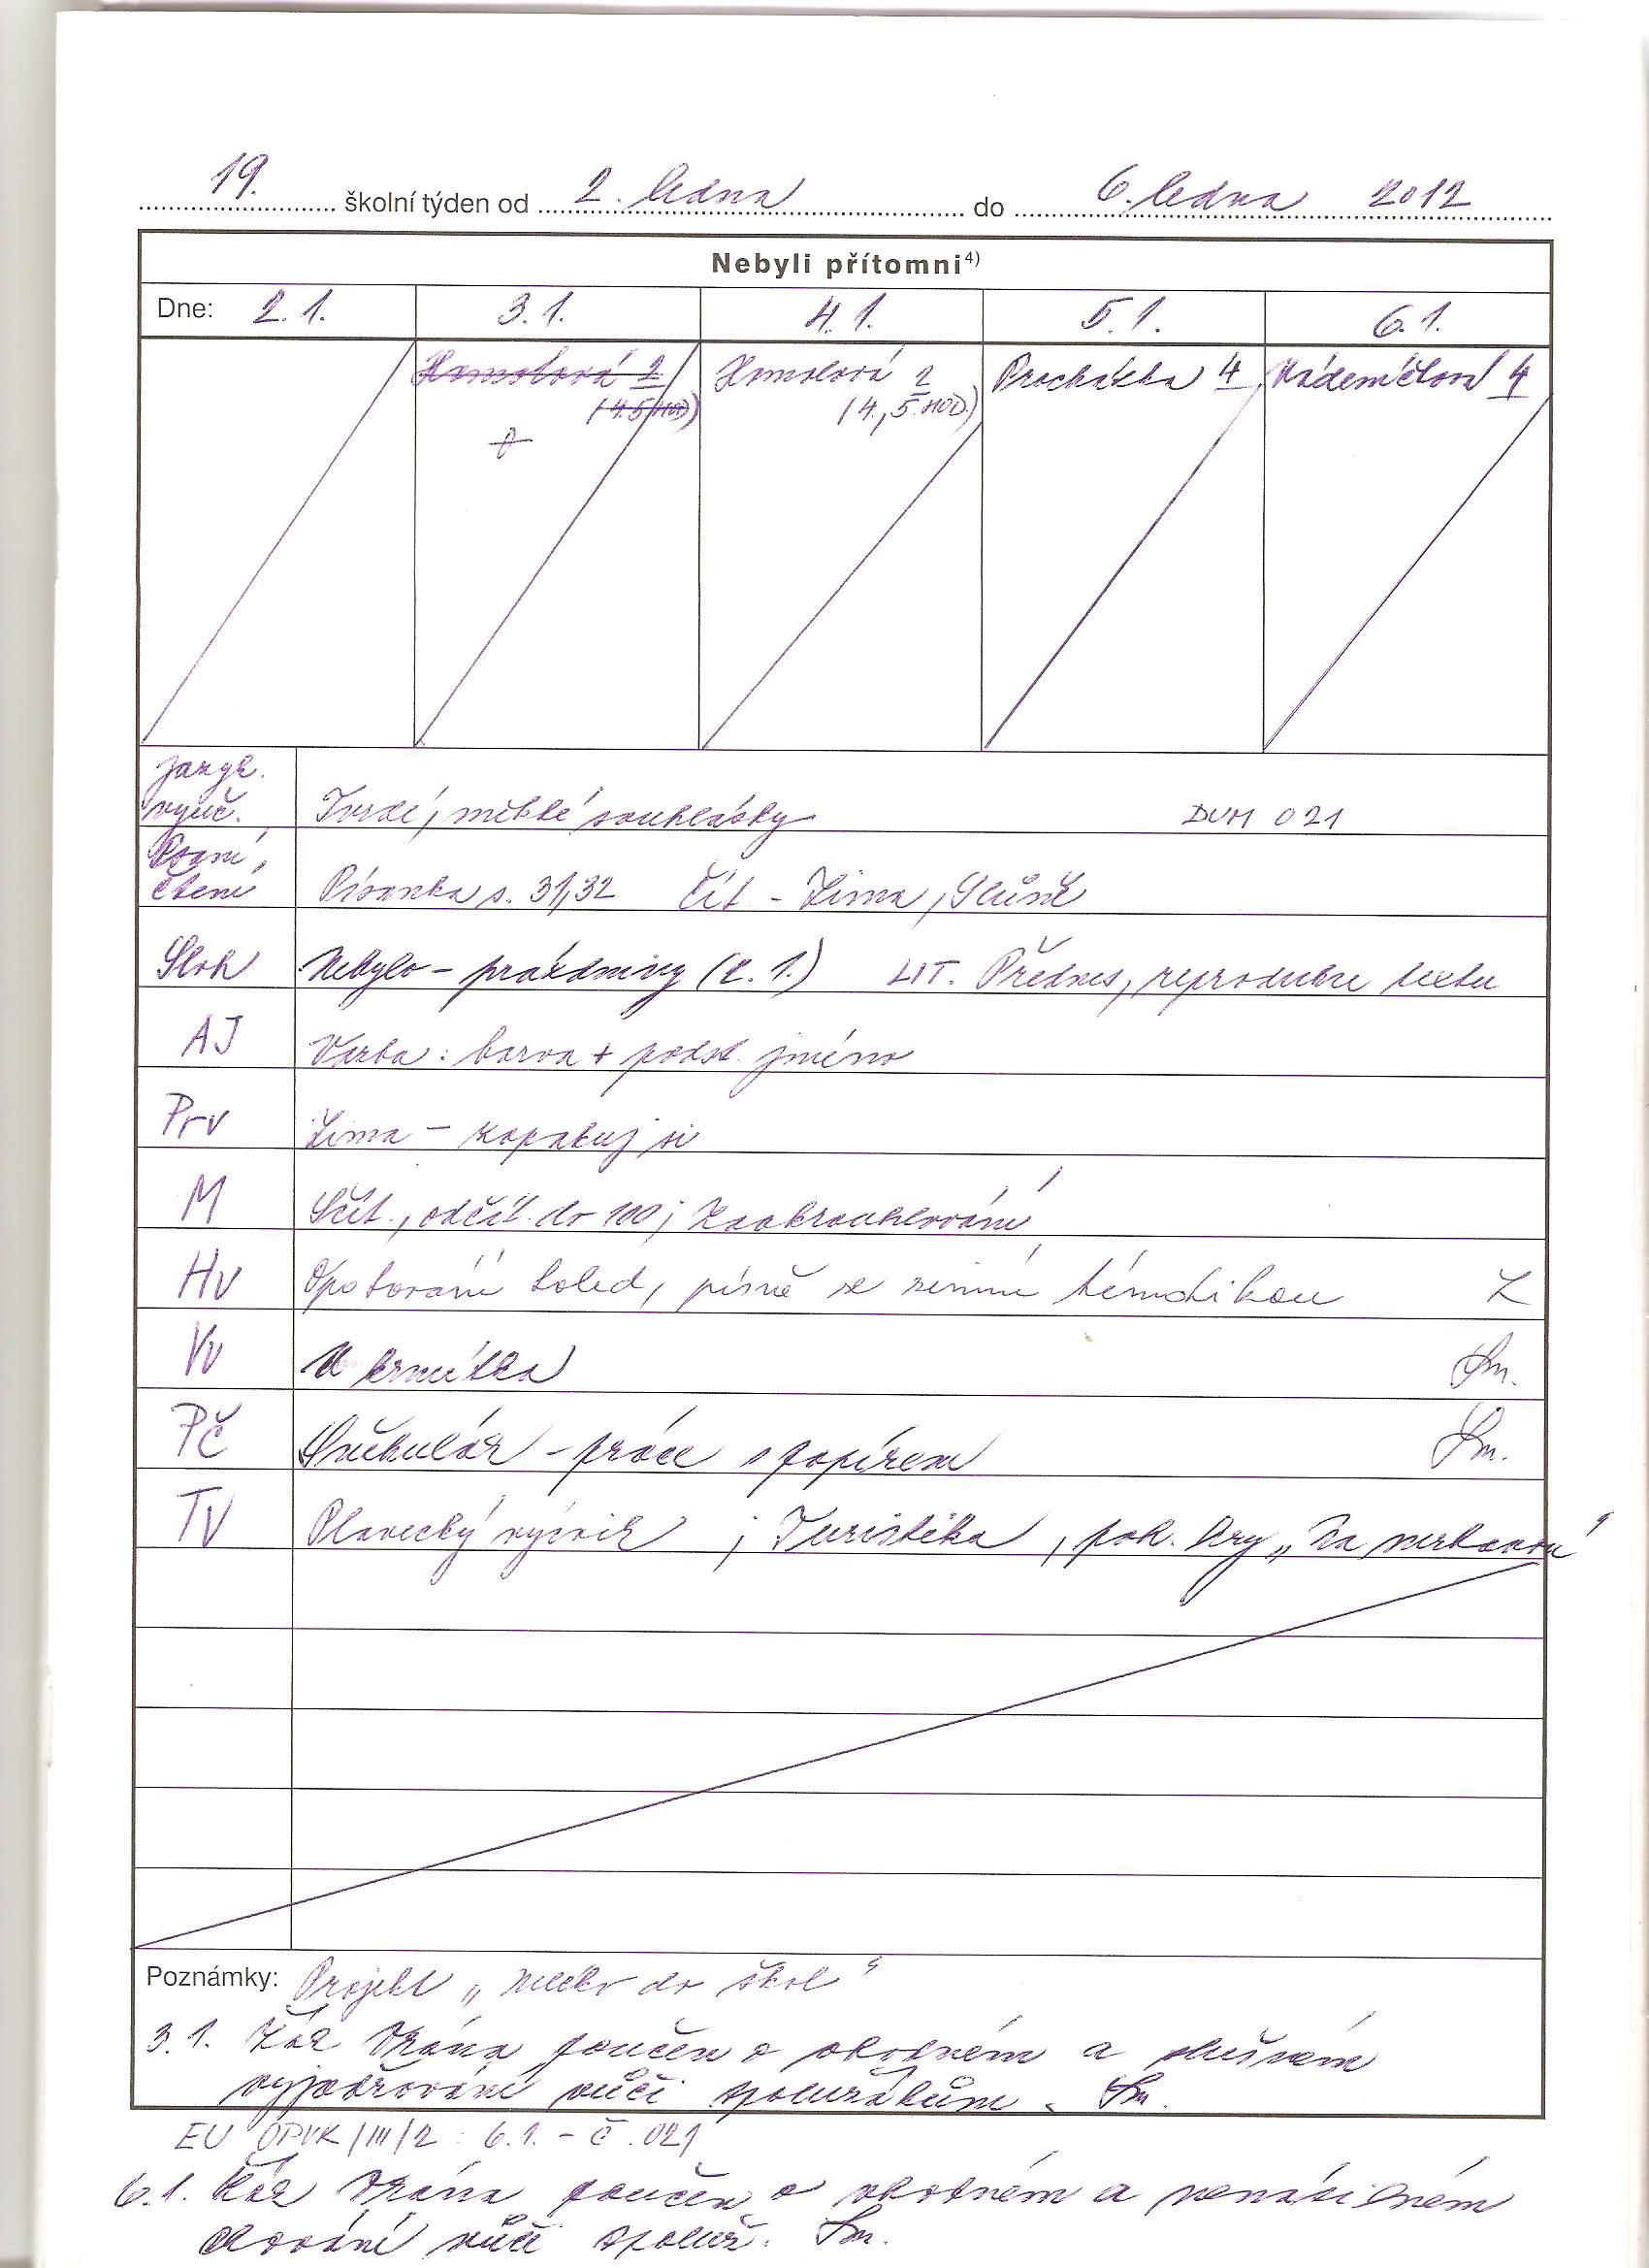 19. školní týden od 2. ledna do 6. ledna 2012
Nebyli přítomni4)
Dne: 2.1. 3.1. 4.1. 5.1. 6.1.
Homolová 2 Homolová 2 Procházka 4 4
(4.5.HOD) (4.,5.HOD.)
Jazyk.
vyuč. Tvrdé, měkké souhlásky DUM 021
Psaní,
čtení Písanka s. 31,32 Čít. - Zima, Sluně
Sloh Nebylo - prázdniny (2.1.) LIT. Přednes, reprodukce textu
AJ Vazba: barva + podst. jméno
Prv Zima - zopakuj si
M Sčít., odčít. do 100; Zaokrouhlování
Hv Opakování koled, písně se zimní tématikou Z
Vv U krmítka Sm.
Pč Sněhulák - práce s papírem Sm.
TV Plavecký výcvik ; Turistika, poh. hry „Na
Poznámky: Projekt „Mléko do škol“
3.1. Žák Vrána poučen o vhodném a slušném
vyjadřování vůči spolužákům. Sm.
EU OPVK/III/2: 6.1. - č. 021
6.1. Žák Vrána poučen o vhodném a nenásilném
chování vůči spoluž. Sm.